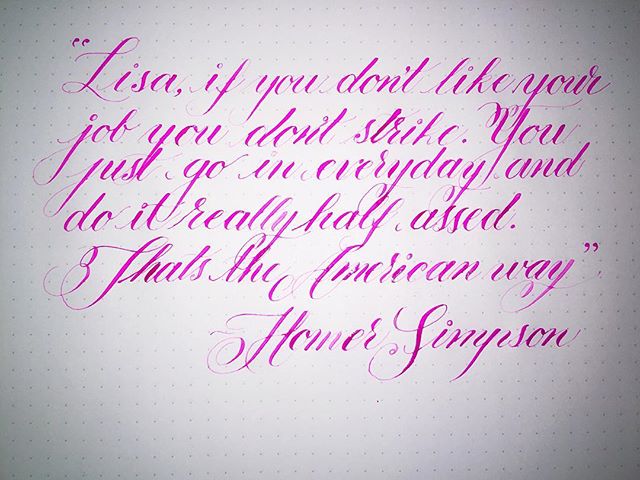 "Lisa, if you don't like your
job you don't strike. You
just go in everyday and
do it really half assed.
Thats the American way"
Homer Simpson